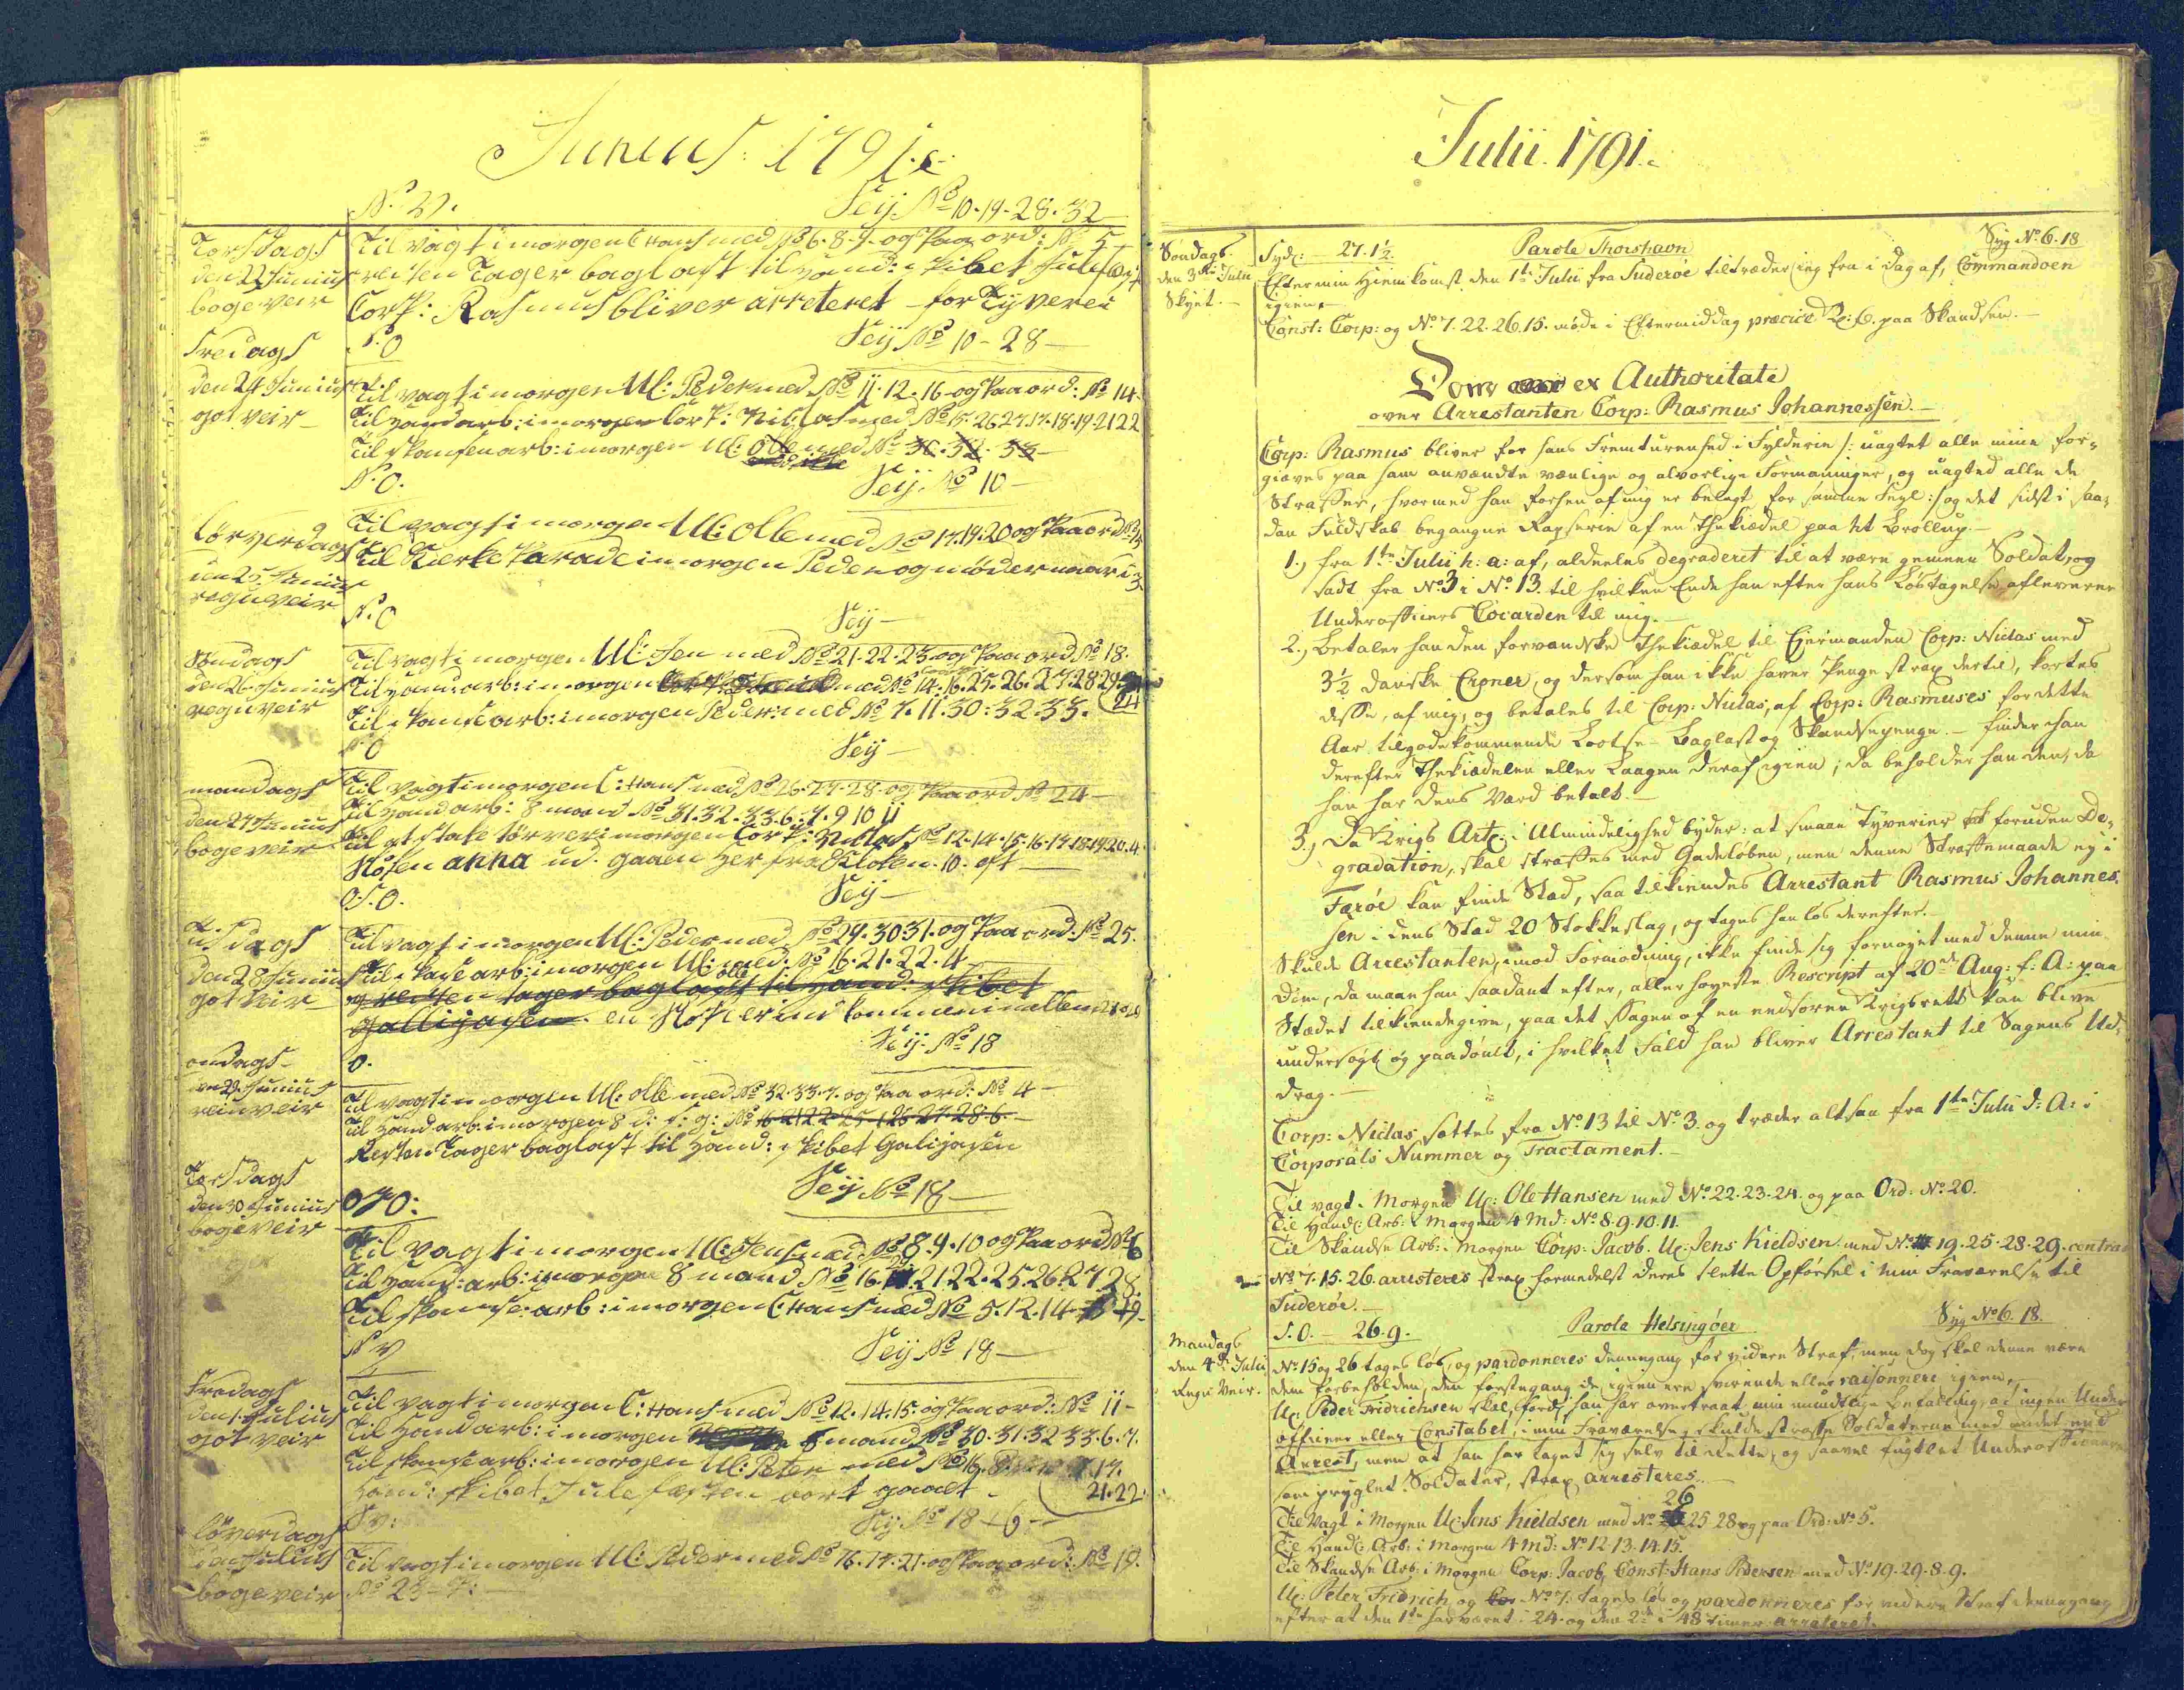 Junius: 1791.
N. 27. Seij No 10-19-28-32
Torsdags
den 23 Junius
boge veir
Til vagt i morgen C Hans med No 6-8-9- og Paa ord: No 5-
resten Tager baglast til Hand: skibet Julefest
Corp: Rasmus bliver arreteret for Tyverei
Fredags
den 24 Junius
got veir
S. O Seij No 10-28-
Til vagt i morgen Uc: Peder med No 11-12-16- og Paa ord: No 14-
Til Hand arb: i morgen Corp: Niclas med No 15-26 27 17-18-19-21 22
Til skansen arb: i morgen Uc: Olle med No 30-32-33-
N. O. Seij. No 10-
Lørverdags
den 25 Junius
regn veir
Til vagt i morgen Uc: Olle med No 17-19-20 og Paa ord No 15
Til Kierke Parade i morgen Peder og møder naar i 3
N. O Seij-
Søndags
den 26 Junius
regn veir
Til vagt i morgen Uc: Jen med No 21-22-23- og Paa ord No 18-
Til Hand: arb: i morgen med No 14-16-25-26-27-28 29
Til skanse arb: i morgen Peder: med No 7-11-30-32-33. 24
N. O Seij-
mandags
den 27 Junius
boge veir
Til vagt i morgen C: Hans med No 26-27-28- og Paa ord No 24-
Til Hand arb: 8 mand No 31-32-33-6-7-9 10 11
Til at stake tørver i morgen Corp: Niclas No 12-14-15-16-17-18-19 20-4-
Skosen anna ud. gaaen her fra Kloken. 10: oft
O. S. O. Seij-
Tisdags
den 28 Junius
got veir
Til vagt i morgen Uc: Peder med No 29-30 31- og Paa ord: No 25.
Til skanse arb: i morgen Uc: olle med: No 16-21-22-4
og resten tager baglast til Hand: skibet
Galligasen. en Skoserind kommen imellem
Seij. No 18
ondags-
den 29 Junius
rein veir
O.
Til vagt i morgen Uc: Olle med No 32-33-7- og Paa ord: No 4-
Til Hand arb: i morgen 8 d: s: g: No 16 21 22 25-26-27-28-6-
Resten Tager baglast til Hand: skibet Galigasen
Torsdags
den 30 Junius
boge veir
O S O: Seij No 18-
Til vagt i morgen Uc: Jens med No 8-9-10 og Paa ord No 6
Til Hand: arb: i morgen 8 mand No 16-21 22-25-26-27-28-
Til skanse: arb: i morgen C: Hans med No 5-12-14-
S V Seij No 18-
Fredags
den 1 Julius
got veir
Til vagt i morgen C: Hans med No 12-14-15- og Paa ord: No 11-
Til Hand arb: i morgen 8 mand No 30-31-32 33-6-7-
Til skanse arb: i morgen Uc: Peter med No 16-8- 17-
Hand: skibet Julefesten bort gaaet. 21-22
Løverdags
Julius
boge veir
S v: Seij No 18-6-
Til vagt i morgen Uc: Peder med No 16-17-21- og Paa ord: No 19.
No 23-7:-
Julii. 1791.
Søndags
den 3die Julii
Skyet.
Syd: - 27.1½ Parole Thorshavn Syg No 6.18
Efter min Hiemkomst, den 1te Julii fra Suderøe tiltræder jeg fra i dag af, Commandoen
igien.
Const: Corp: og No 7. 22. 26. 15. møde i Eftermiddag præcise Kl: 6. paa Skandsen.
Dom ex Authoritate
over Arrestanten Corp: Rasmus Johannessen.
Corp: Rasmus bliver for hans Fremturenhed i Fylderie /: uagtet alle mine for-
gieves paa ham anvendte venlige og alvorlige Formaninger, og uagted alle de
Straffer, hvormed han forhen af mig er belagt for samme Fejl :/ og det sidst i saa-
dan Fuldskab begangne Rapserie af en Thekiedel paa et Brøllup.
1.) fra 1te Julii h: a: af, aldeeles degraderet til at være gemeen Soldat, og
sadt fra No 3 i No 13. til hvilken Ende han efter hans Løstagelse afleverer
Underofficers Cocarden til mig.
2.) Betaler han den forvandske Thekiedel til Ejermanden Corp: Niclas med
3½ danske Croner, og dersom han ikke haver Penge strax dertil, kortes
disse, af mig, og betales til Corp: Niclas, af Corp: Rasmuses for dette
Aar tilgodekommende Lootse- Baglast og Skandsepenge. - Finder han
derefter Thekiedelen eller Laagen deraf igien; da beholder han den, da
han har dens Værd betalt.
3.) Da Krigs Artc: i Almindelighed byder: at smaae Tyverier foruden De-
gradation, skal straffes med Gadeløben, men denne Straffemaade ej i
Færøe kan finde Stæd, saa tilkiendes Arrestant Rasmus Johannes-
sen i dens Stæd 20 Stokkeslag, og tages han løs derefter.
Skulde Arrestanten, imod Formodning, ikke finde sig fornøyet med denne min
Dom, da maae han saadant efter, allerhøyeste Rescript af 20de Aug: f: A: paa
Stædet tilkiendegive, paa det Sagen af en eedsvoren Krigsrett kan blive
undersøgt og paadømt, i hvilket Fald han bliver Arrestant til Sagens Ud-
drag.
Corp: Niclas sættes fra No 13 til No 3. og træder altsaa fra 1te Julii d: A: i
Corporals Nummer og Tractament.
Til vagt i Morgen Uc: Ole Hansen med No 22. 23. 24. og paa Ord: No 20.
Til Handl: Arb: i Morgen 4 Md: No 8. 9. 10. 11.
Til Skandse Arb: i Morgen Corp: Jacob. Uc: Jens Kieldsen med No 19. 25. 28. 29.
No 7. 15. 26. arresteres strax formedelst deres slette Opførsel i min Fraværelse til
Suderøe.
Mandags
den 4de Julii
Regn Veir.
S. O. - 26. 9. Parole Helsingøer Syg No 6. 18.
No 15 og 26 tages løs, og pardonneres dennegang for videre Straf, men dog skal denne være
dem forbeholden, den førstegang de igien ere svirende eller raisonnere igien.
Uc: Peder Fridrichsen skal, fordi han har overtraat min mundtlige Befalding, at ingen Under
officeer eller Constabel, i min Fraværelse, skulde straffe Soldaterne med andet end
Arrest, men at han har taget sig selv til Rette, og saavel fugtlet Underofficerer
som pryglet Soldater, strax arresteres.
Til Vagt i Morgen Uc: Jens Kieldsen med No 26 25 28 og paa Ord: No 5.
Til Handl: Arb: i Morgen 4 Md: No 12. 13. 14. 15.
Til Skandse Arb: i Morgen Corp: Jacob, Const: Hans Pedersen med No 19. 29. 8. 9.
Uc: Peter Fridrich og No 7. tages løs og pardonneres for videre Straf dennegang
efter at den 1te har været i 24. og den 2den i 48 timer arreteret.